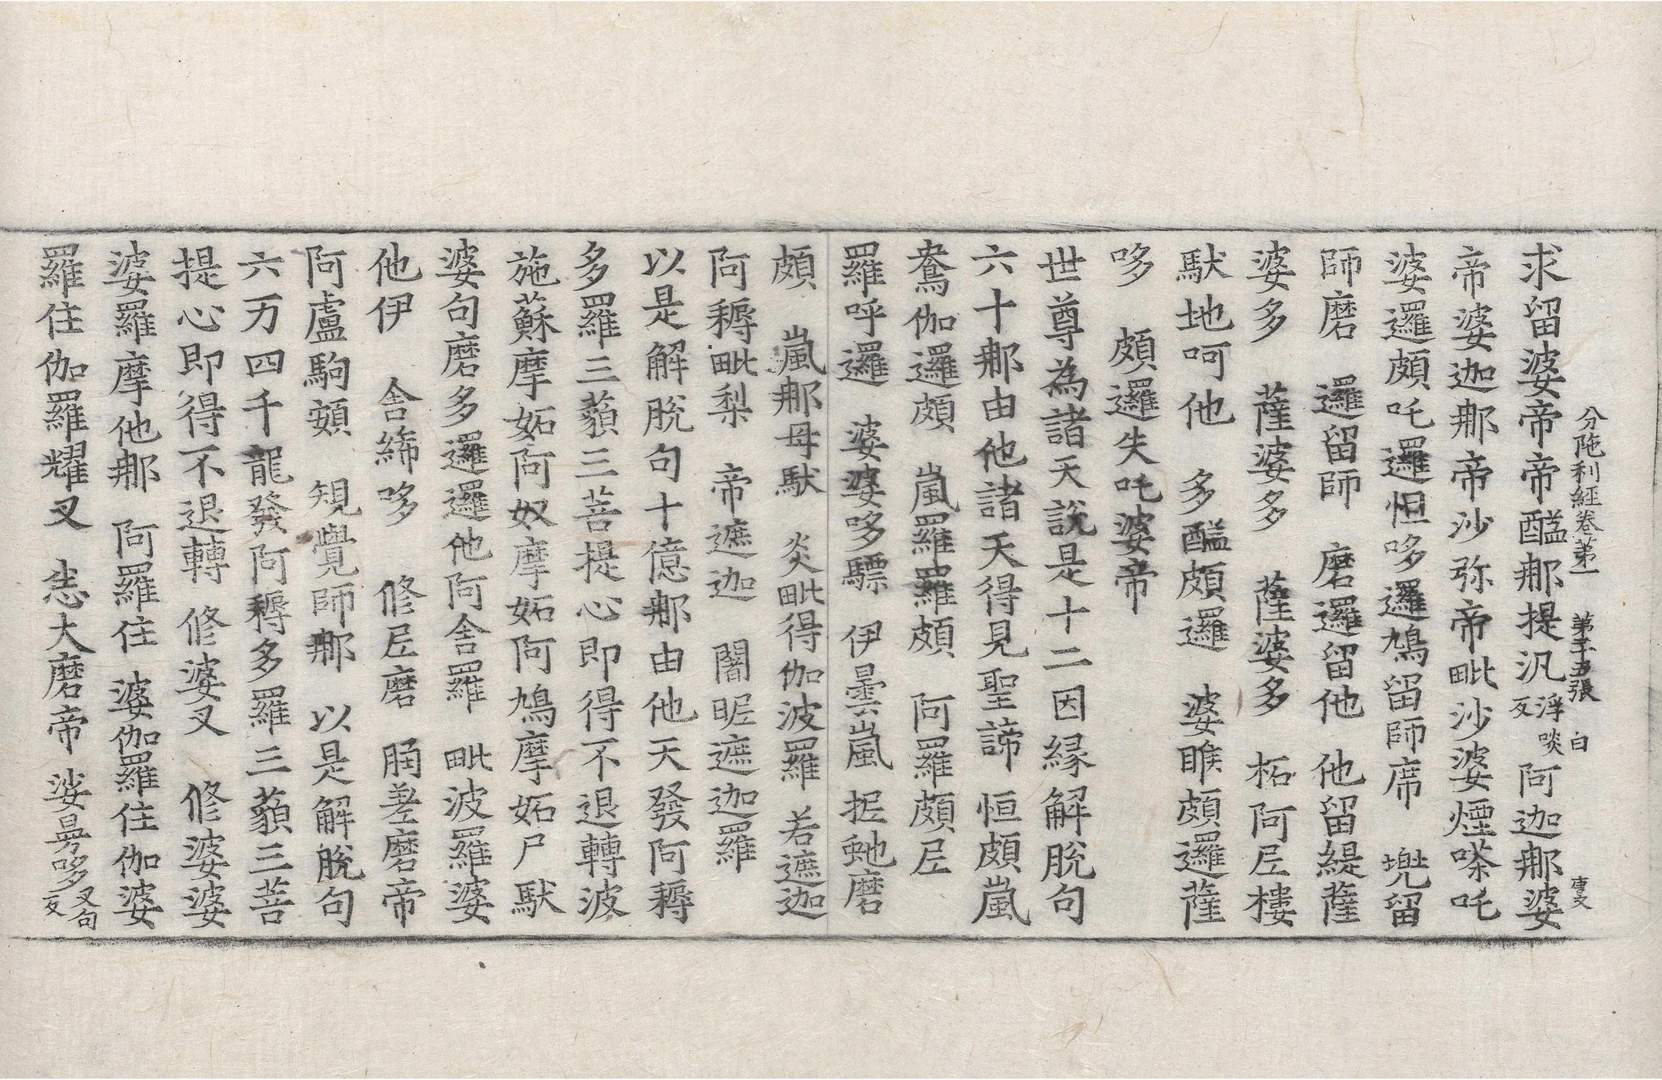 求留婆帝帝醯那提汎浮啖反阿迦那婆
分陁利經卷第一 第十五張 白 唐文
帝婆迦那帝沙弥帝毗沙婆煙嗏吒
婆邏頗吒邏怛哆邏鳩留師席 兠留
師磨 邏留師 磨邏留他 他留緹薩
婆多 薩婆多 薩婆多 柘阿𡰱樓
馱地呵他 多醯頗邏 婆睢頗邏薩
哆 頗邏失吒婆帝
世尊為諸天說是十二因緣解脫句
六十那由他諸天得見聖諦 恒頗嵐
鴦伽邏頗 嵐羅羅頗 阿羅頗𡰱
羅呼邏 婆婆哆驃 伊曇嵐 抳虵磨
頗 嵐那母馱 炎毗得伽波羅 若遮迦
阿耨毗梨 帝遮迦 闍昵遮迦羅
以是解脫句十億那由他天發阿耨
多羅三藐三菩提心即得不退轉波
施蘇摩妬阿奴摩妬阿鳩摩妬尸馱
婆句磨多邏邏他阿舍羅 毗波羅婆
他伊 舍締哆 修𡰱磨 差磨帝
阿盧駒頞 覺師那 以是解脫句
六万四千龍發阿耨多羅三藐三菩
提心即得不退轉 修婆叉 修婆婆
婆羅摩他那 阿羅住 婆伽羅住伽婆
羅住伽羅耀叉 恙大磨帝 娑曼哆叉句反